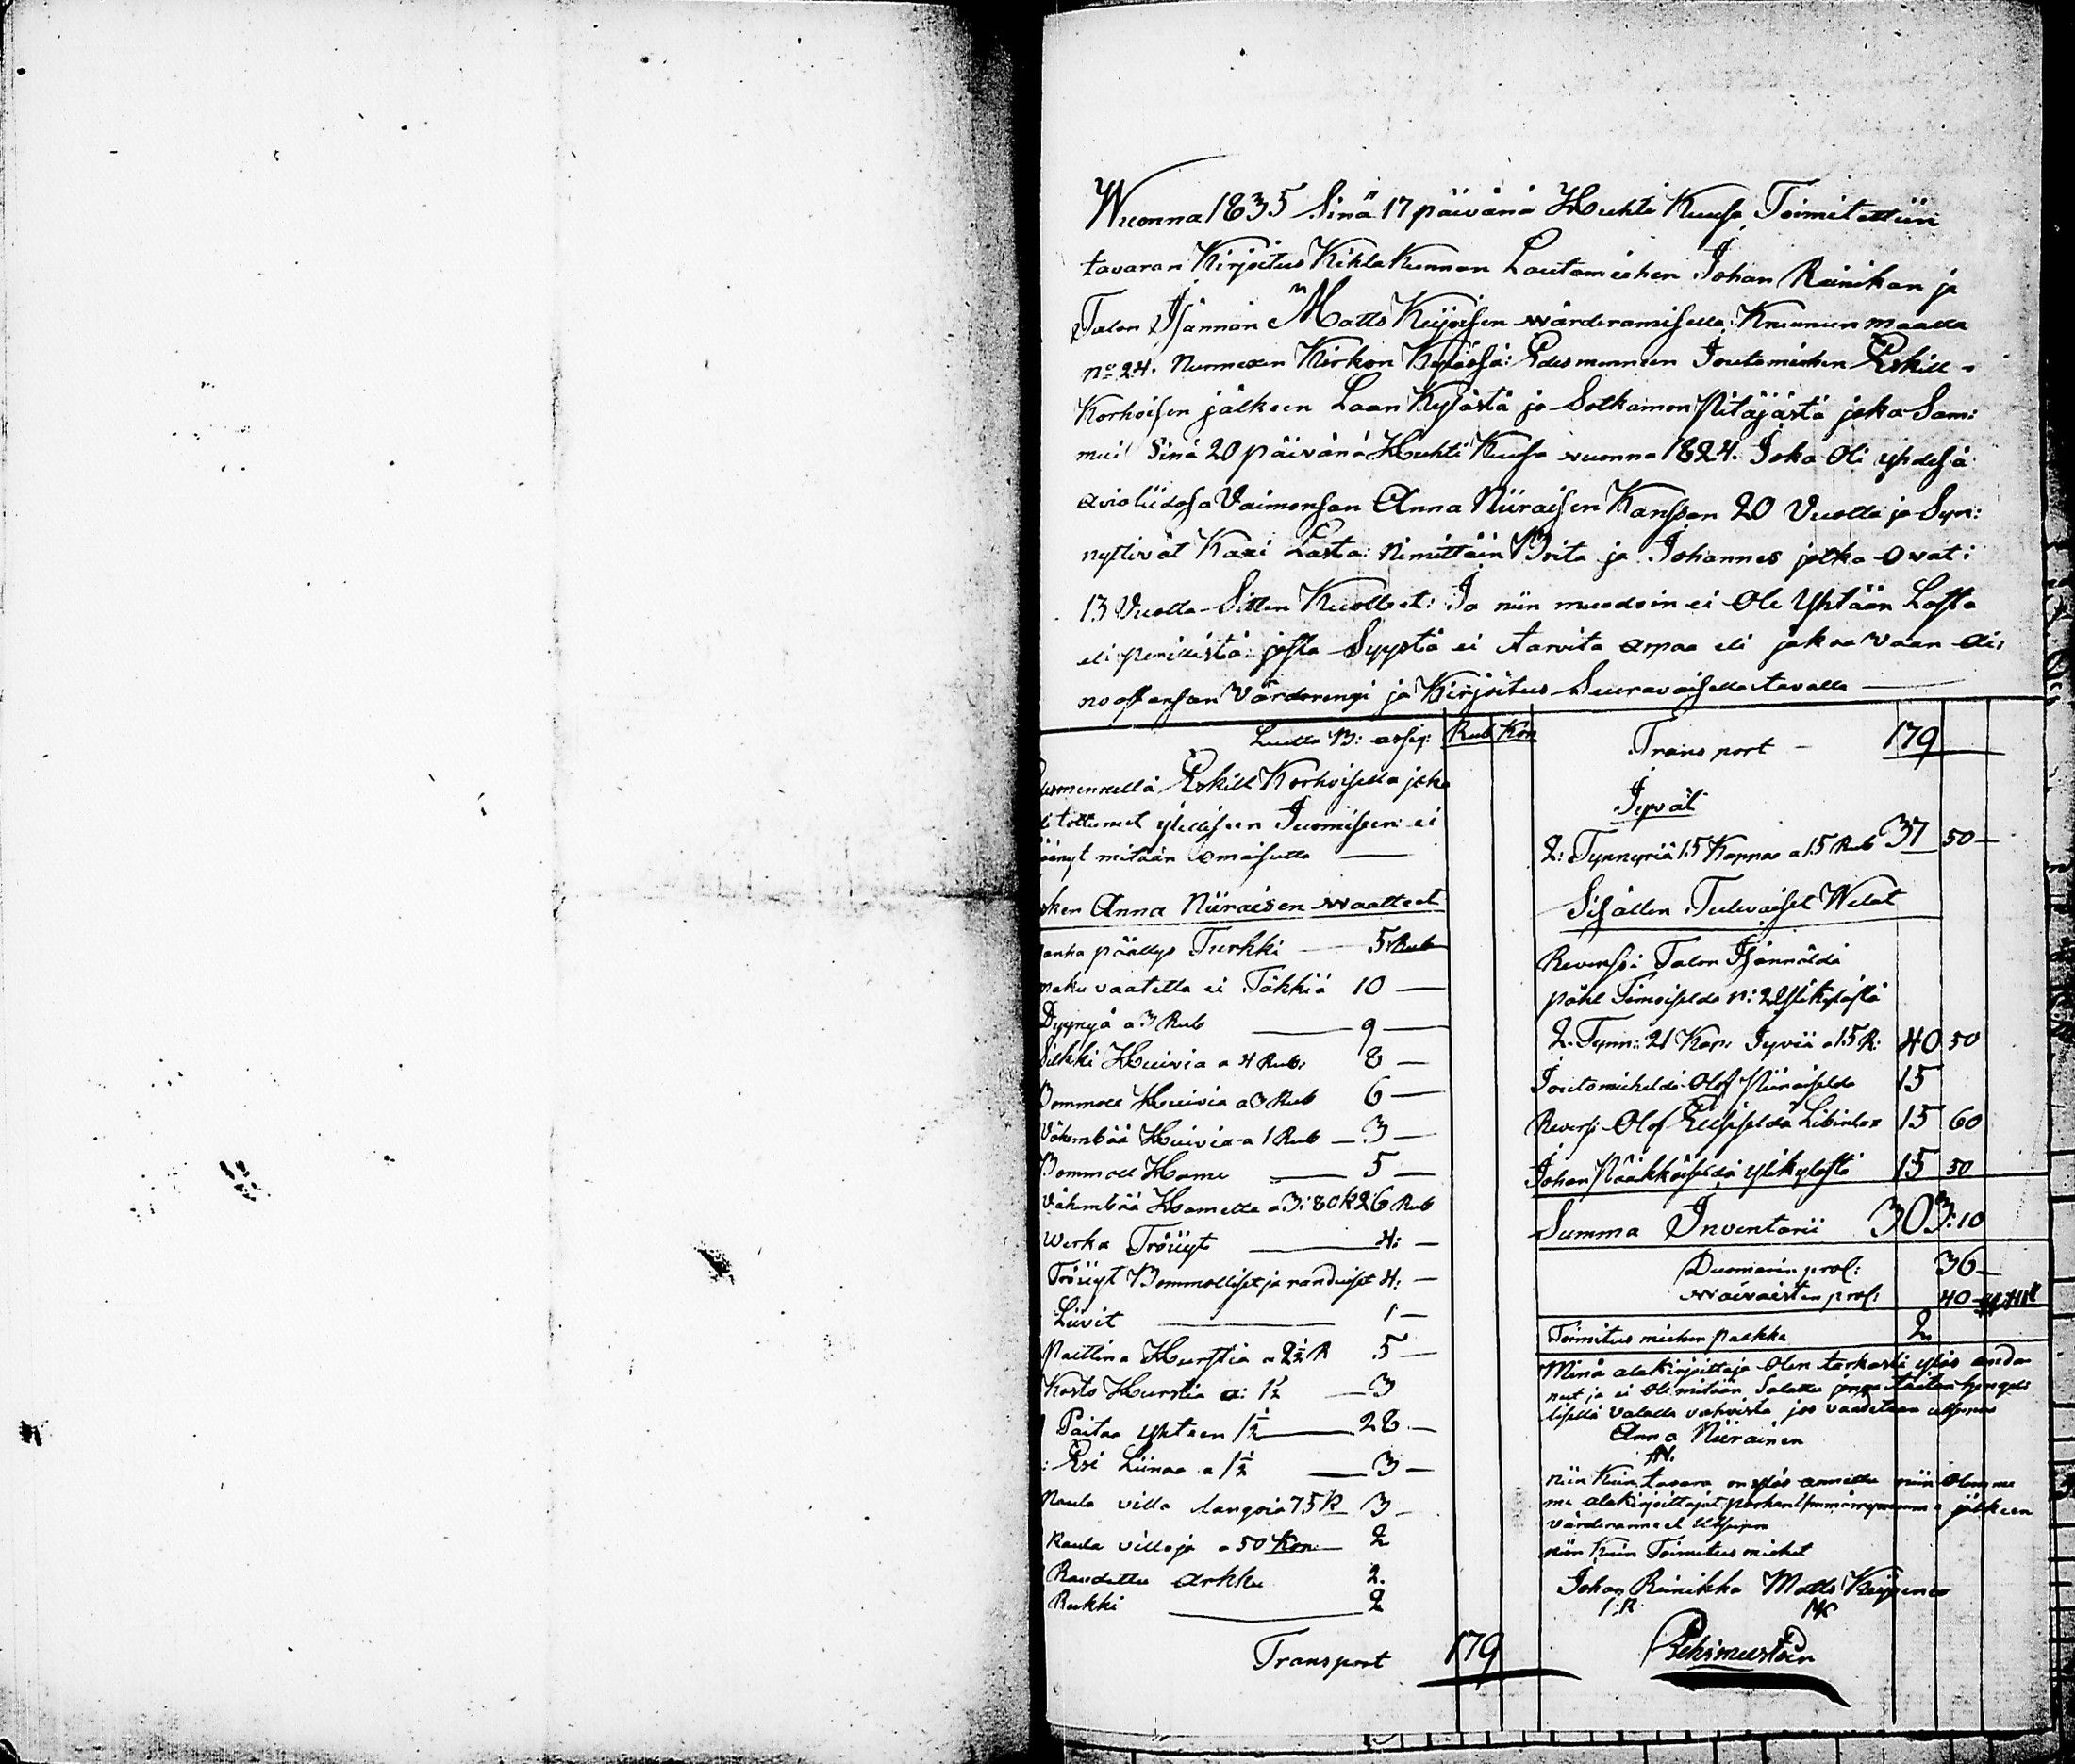 Wuonna 1835 Sinä 17 päivänä Huhti Kuusa Toimitettiin
tavaran Kirjoitus Kihlakunnan Lautamiehen Johan Reinikan ja
Talon Isännän Matts Keijoisen wärderamisella: Kruunun maalla
No 24. Nurmexen Kirkon Kyläsä: Edesmennen Joutomiehen Eskill
Korhoisen jälkeen Laan Kylästä ja Sotkamon Pitäjästä joka Sam:
mui Sinä 20 päivänä Huhti Kuusa vuonna 1824. Joka Oli yhdesä
avioliidosa Vaimonsan Anna Niiraisen Kanssan 20 Vuotta ja Syn:
nyttivät Kaxi Lasta: Nimittäin Brita ja Johannes jotka Ovat:
13 Vuotta Sitten Kuollet: Ja niin muodoin ei Ole Yhtään Lasta
eli perillistä: josta Syystä ei tarvita arpaa eli jakoa Vaan ai:
noastansan Värderingi ja Kirjoitus Seuravaisella tavalla
Luulla B: assig: Rub Kop
esmennellä Eskill Korhoisella joka
li tottunut ylelliseen Juomiseen ei
äänyt mitään Omaisutta
sken Anna Niiraisen waatteet
anha päällys Turkki 5 Rub
maku vaatetta ei Täkkiä 10
Dyynyä a 3 Rub 9
Silkki Huivia a 4 Rub: 8
Bommoll Huivia a 3 Rub 6
Vähembää Huivia a 1 Rub 3
Bommoll Hame 5
Vähembää Hametta a 3: 80 k 26 Rub
Werka Tröiyt 4:
Tröiyt Bommolliset ja randuiset 4:
Liivit 1
Palttina Hurstia a 2½ R 5
Karto Hurstia a: 1½ 3
Paitaa Yhteen 1½ 28
: Esi Liinaa a 1½ 3
Naula villa langoia 75 k 3
Naula villoja a 50 Kop: 2
Raudattu arkku 2.
Rukki 2
Transport 179
Transport 179
Jyvät
2: Tynnyriä 15 Kappaa a 15 Rub 37 50
Sisällen Tulevaiset Welat
Reversi: Talon Isännäldä
Påhl Timoiselda N: 2 Ylikylästä
2. Tynn: 21 Kap: Jyviä a 15 R: 40 50
Joutomieheldä Olof Niiraiselda 15
Revers: Olof 15 60
Johan Nääkköiseldä ylikylästä 15 50
Summa Inventarii 303:10
Duomarin pros: 36
Waivaisten pros: 40
Toimitus miehen palkka 2
Minä alakirjoittaja Olen tarkasti ylös anda
nut ja ei Ole mitään Salattu jonga taitan hengeli
lisellä Valalla vahvista jos vaaditaan
Anna Niirainen
AN.
niin Kuin tavara on ylös annettu niin Olemme
me alakirjoittajat parhan ymmärryxemme jälkeen
värderanneet
niin Kuin Toimitus miehet
Johan Reinikka Matts Keijoinen
I:R MK